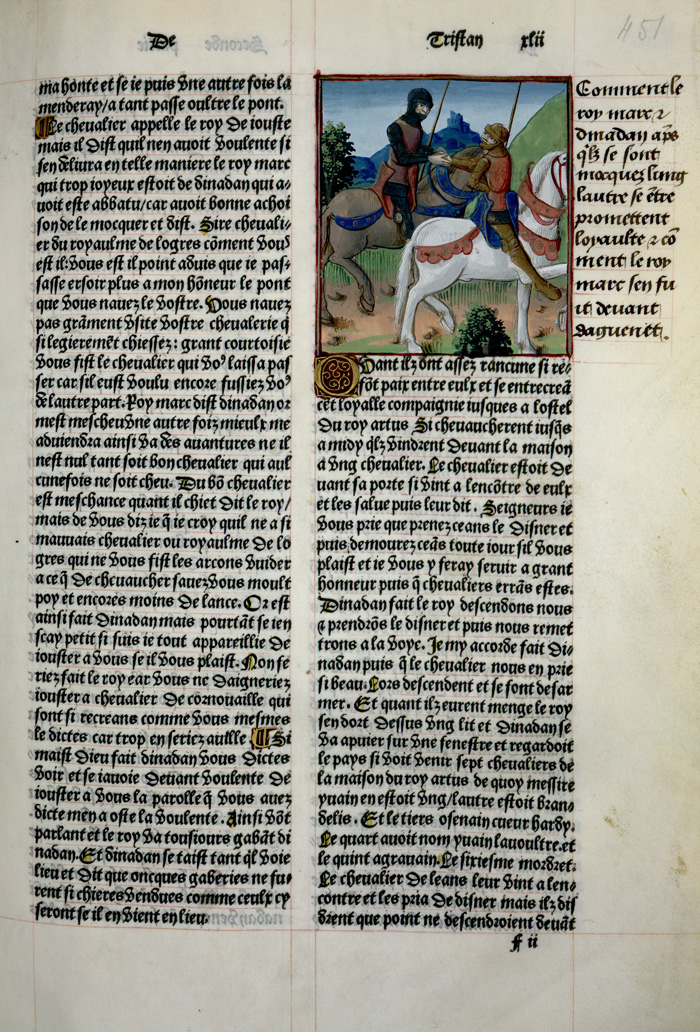 De
Tristan xlii
451
ma honte et se ie puis vne autre fois la
menderay/a tant passe oultre le pont.
Le cheualier appelle le roy de iouste
mais il dist quil nen auoit voulente si
sen deliura en telle maniere le roy marc
qui trop ioyeux estoit de dinadan qui a-
uoit este abbatu/car auoit bonne achoi
son de le mocquer et dist. Sire cheuali-
er du royaulme de logres cōment vous
est il: vous est il point aduis que ie pas-
sasse ersoir plus a mon hōneur le pont
que vous nauez le vostre. Vous nauez
pas grāment vsite vostre cheualerie q̄
si legieremēt chiessez: grant courtoisie
vous fist le cheualier qui vo⁹ laissa pas
ser car sil eust voulu encore fussiez vo⁹
de lautre part. Roy marc dist dinadan or
mest mescheu vne autre foiz mieulx me
aduiendra ainsi va des auantures ne il
nest nul tant soit bon cheualier qui aul
cunefois ne soit cheu. Du bō cheualier
est meschance quant il chiet dit le roy/
mais de vous diz ie q̄ ie croy quil ne a si
mauuais cheualier ou royaulme de lo
gres qui ne vous fist les arcons vuider
a ce q̄ de cheuaucher sauez vous moult
poy et encores moins de lance. Or est
ainsi fait dinadan mais pourtāt se ien
scay petit si suis ie tout appareillie de
iouster a vous se il vous plaist. Non fe
riez fait le roy car vous ne daigneriez
iouster a cheualier de cornouaille qui
sont si recreans comme vous mesmes
le dictes car trop en seriez auille. Si
maist dieu fait dinadan vous dictes
voir et se iauoie deuant voulente de
iouster a vous la parolle q̄ vous auez
dicte men a oste la voulente. Ainsi vōt
parlant et le roy va tousiours gabāt di
nadan. Et dinadan se taist tant q̄l voie
lieu et dit que oncques gaberies ne fu-
rent si chieres vendues comme ceulx cy
seront se il en vient en lieu.
Comment le
roy marc ⁊
dinadan aps
q̄lz se sont
mocquez lung
lautre se ētre
promettent
loyaulte ⁊ cō
ment le roy
marc sen fu
it deuant
daguenet.
Quant ilz ōnt assez rancune si re-
fōt paix entre eulx et se entrecreā
cēt loyalle compaignie iusques a lostel
du roy artus Si cheuaucherent iusq̄s
a midy q̄lz vindrent deuant la maison
a vng cheualier. Le cheualier estoit de
uant sa porte si vint a lencōtre de eulx
et les salue puis leur dit. Seigneurs ie
vous prie que prenez ceans le disner et
puis demourez ceās toute iour sil vous
plaist et ie vous y feray seruir a grant
honneur puis q̄ cheualiers errās estes.
Dinadan fait le roy descendons nous
⁊ prendrōs le disner et puis nous remet
trons a la voye. Je my accorde fait di-
nadan puis q̄ le cheualier nous en prie
si beau. Lors descendent et se sont desar
mer. Et quant ilz eurent menge le roy
sen dort dessus vng lit et dinadan se
va apuier sur vne fenestre et regardoit
le pays si voit venir sept cheualiers de
la maison du roy artus de quoy messire
yuain en estoit vng/lautre estoit bran-
delis. Et le tiers osenain cueur hardy.
Le quart auoit nom yuain lauoultre. et
le quint agrauain. Le sixiesme mordret.
Le cheualier de leans leur vint a len-
contre et les pria de disner mais ilz dis
drent que point ne descendroient deuāt
ff ii